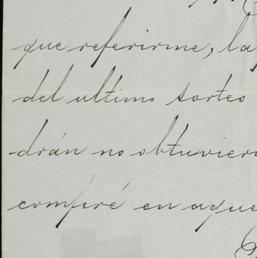 que referirme, la
del ultimo sorteo
drán no obtuvier
compré en aque